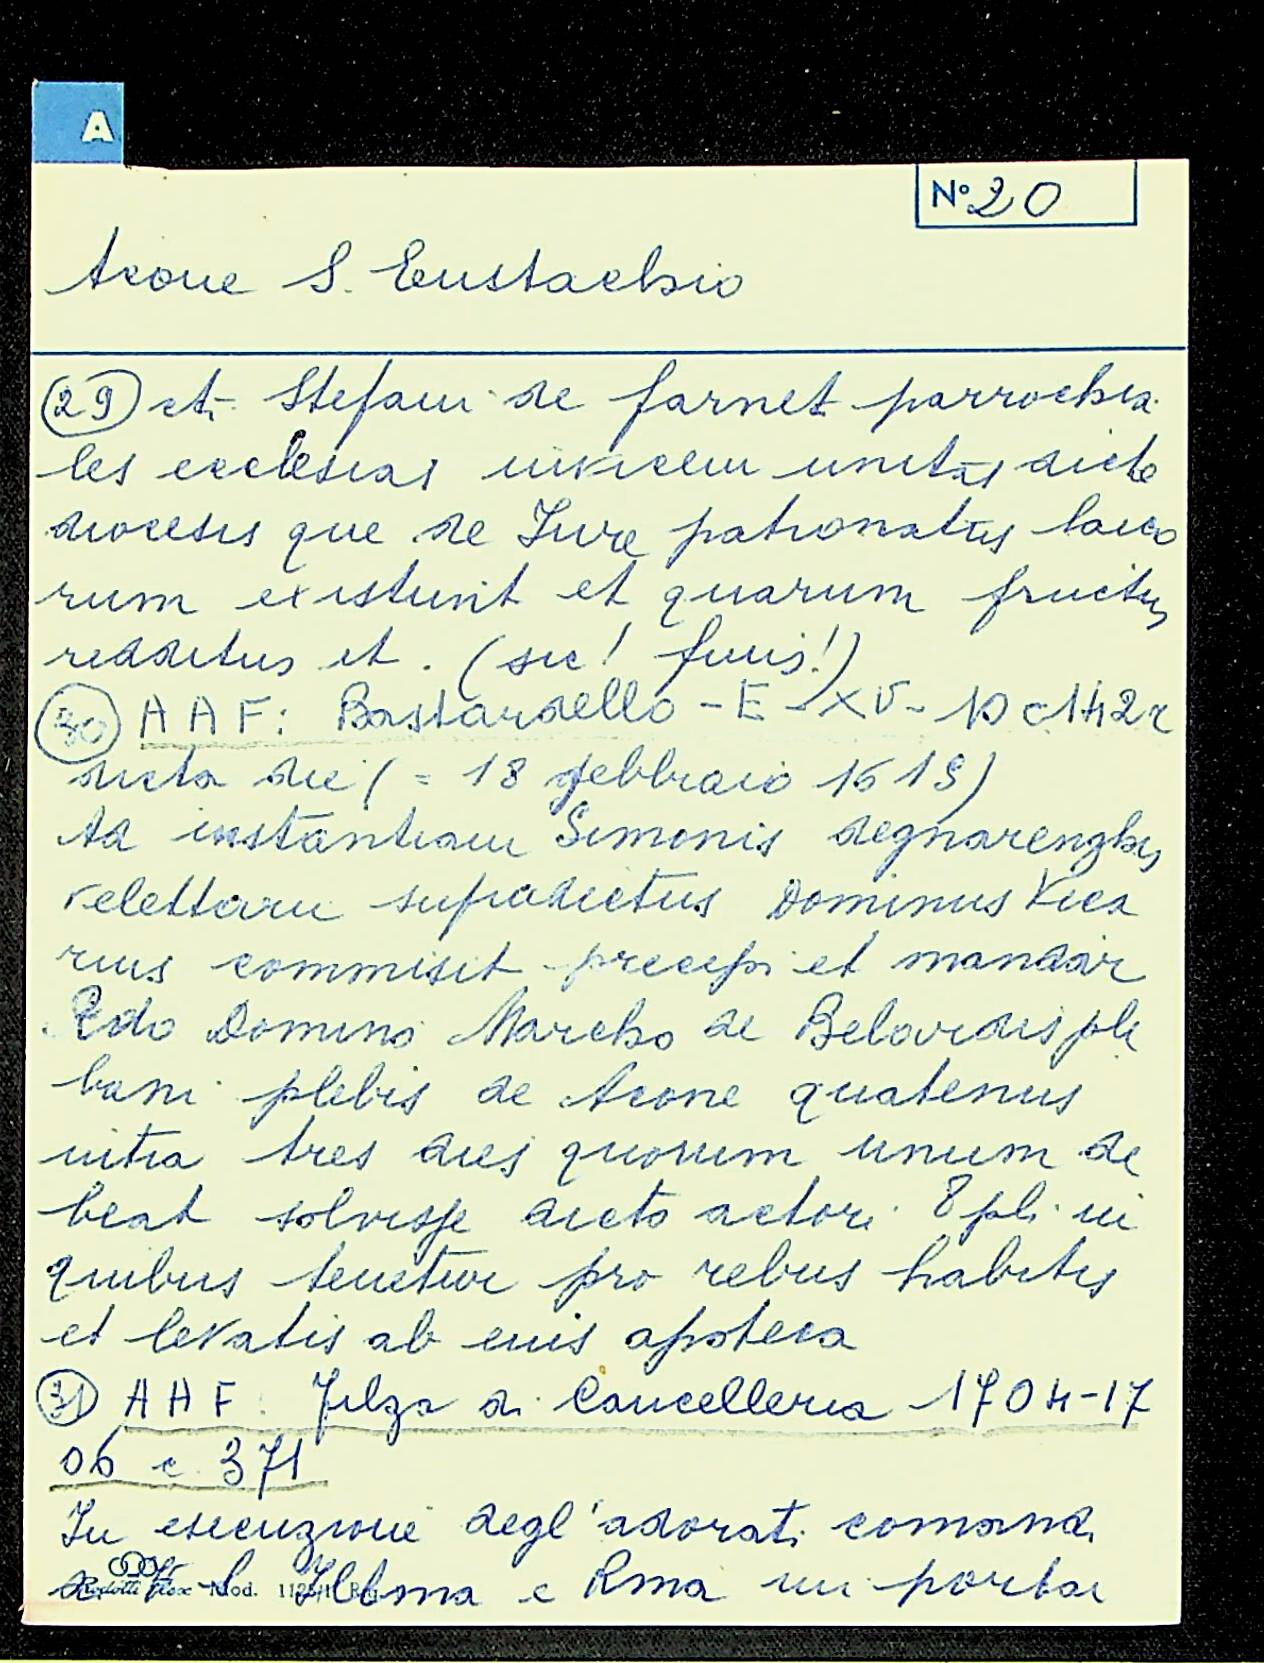 A
N° 20
Acone S. Eustachio
(29) et Stefani de farnet parrochia
les ecclesias invicem unitas dicte
diocesis que de Jure patronatus laico
rum existunt et quarum fructus
redditus et. (sic! finis!)
(30) AAF: Bastardello - E - XV - 10 c 142r
dicta die (= 18 febbraio 1619)
Ad instantiam Simonis
velettarii supradictus Dominus Vica
rius commisit precepi et mandar
Rdo Domino Marcho de Belardis ple
bani plebis de Acone quatenus
intra tres dies quorum unum de
beat solvisse dicto actori 8 pl. in
quibus tenetur pro rebus habitis
et levatis ab eius apoteca
(31) AAF: Filza di Cancelleria 1704-17
06 c. 371
In esecuzione degl'adorati comand
Illma e Rma mi portai
Mod.